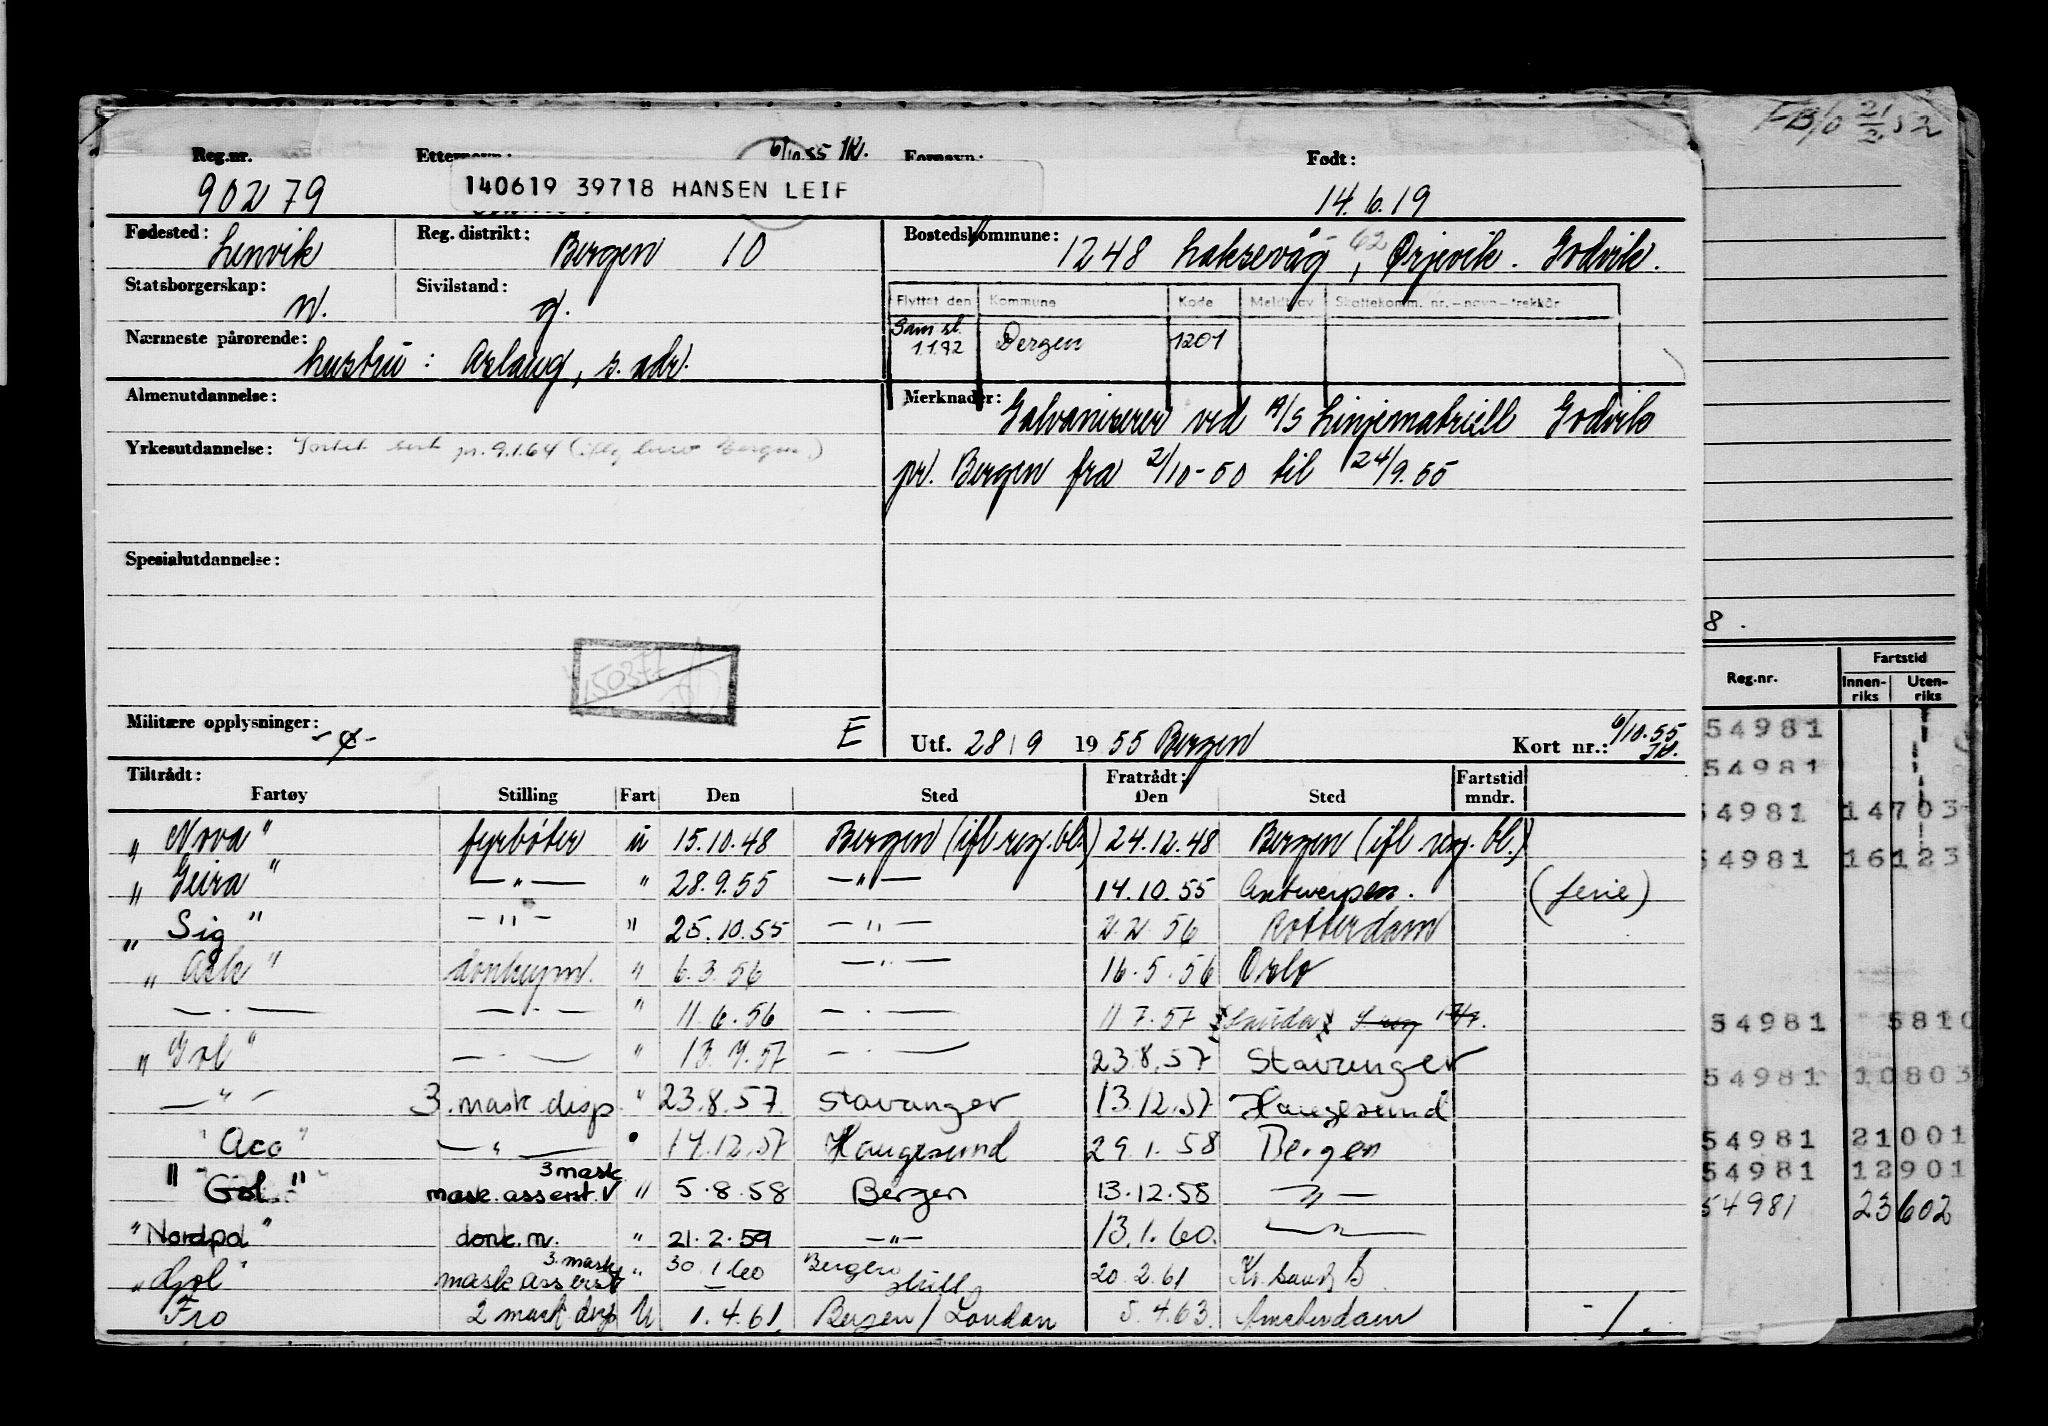 FB/0 21/2 52
6/10.55 JK.
Reg.nr. Etternavn: Fornavn: Født:
90279 140619 39718 HANSEN LEIF 14.6.19
Fødested: Lenvik Reg. distrikt: Bergen 10 Bostedskommune: 1248 Laksevåg, 62 Ørjevik. Godvik.
Statsborgerskap: n. Sivilstand: g.
Flyttet den Kommune Kode Meldt av Skattekomm. nr.-navn-trekkår
Sam.sl. 1.1.72 Bergen 1201
Nærmeste pårørende: hustru: Aslaug, s. adr.
Almenutdannelse:
Merknader: Galvaniserer ved A/S Linjemateriell Godvik
Yrkesutdannelse: pr. 9.1.64
pr. Bergen fra 2/10-50 til 24/9.55
Spesialutdannelse:
Militære opplysninger: E
Utf. 28/9 1955 Bergen Kort nr.: 6/10.55
Tiltrådt: Fratrådt: Fartstid
Fartøy Stilling Fart Den Sted Den Sted mndr.
„ Nova " fyrbøter u 15.10.48 Bergen (ifl reg.bl.) 24.12.48 Bergen (ifl reg. bl.)
„ Geira " — " — " 28.9.55 — " — 14.10.55 Antwerpen. (ferie)
„ Sig " — " — " 25.10.55 — " — 2.2.56 Rotterdam
„ Ask " donkeym. " 6.3.56 — " — 16.5.56 Oslo
— " — — " — " 11.6.56 — " — 11.7.57 Sauda
„ Gol " — " — " 13.7.57 — " — 23.8.57 Stavanger
— " — 3. mask. disp. " 23.8.57. Stavanger 13.12.57 Haugesund
" Aco " — " — " 14.12.57 Haugesund 29.1.58 Bergen
" Gol " mask. assist. 3 mask " 5.8.58 Bergen 13.12.58 — " —
" Nordpol " donk.m. " 21.2.59 — " — 13.1.60. — " —
„ Gol " mask assist 3. mask " 30.1.60 Bergen 20.2.61 Kr.sand S
Fro 2 mask disp U 1.4.61. Bergen / London 5.4.63. Amsterdam - 1.
8.
Reg.nr. Fartstid
Innen-riks Uten-riks
54981
54981
54981 14703
54981 16123
54981 5810
54981 10803
54981 21001
54981 12901
54981 23602